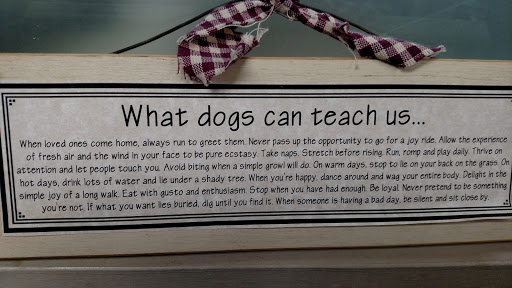 What dogs can teach us...
When loved ones come home, always run to greet them. Never pass up the opportunity to go for a joy ride. Allow the experience
of fresh air and the wind in your face to be pure ecstasy. Take naps. Stretch before rising. Run, romp and play daily. Thrive on
attention and let people touch you. Avoid biting when a simple growl will do. On warm days, stop to lie on your back on the grass. On
hot days, drink lots of water and lie under a shady tree. When you're happy, dance around and wag your entire body. Delight in the
simple joy of a long walk. Eat with gusto and enthusiasm. Stop when you have had enough. Be loyal. Never pretend to be something
you're not. If what you want lies buried, dig until you find it. When someone is having a bad day, be silent and sit close by.